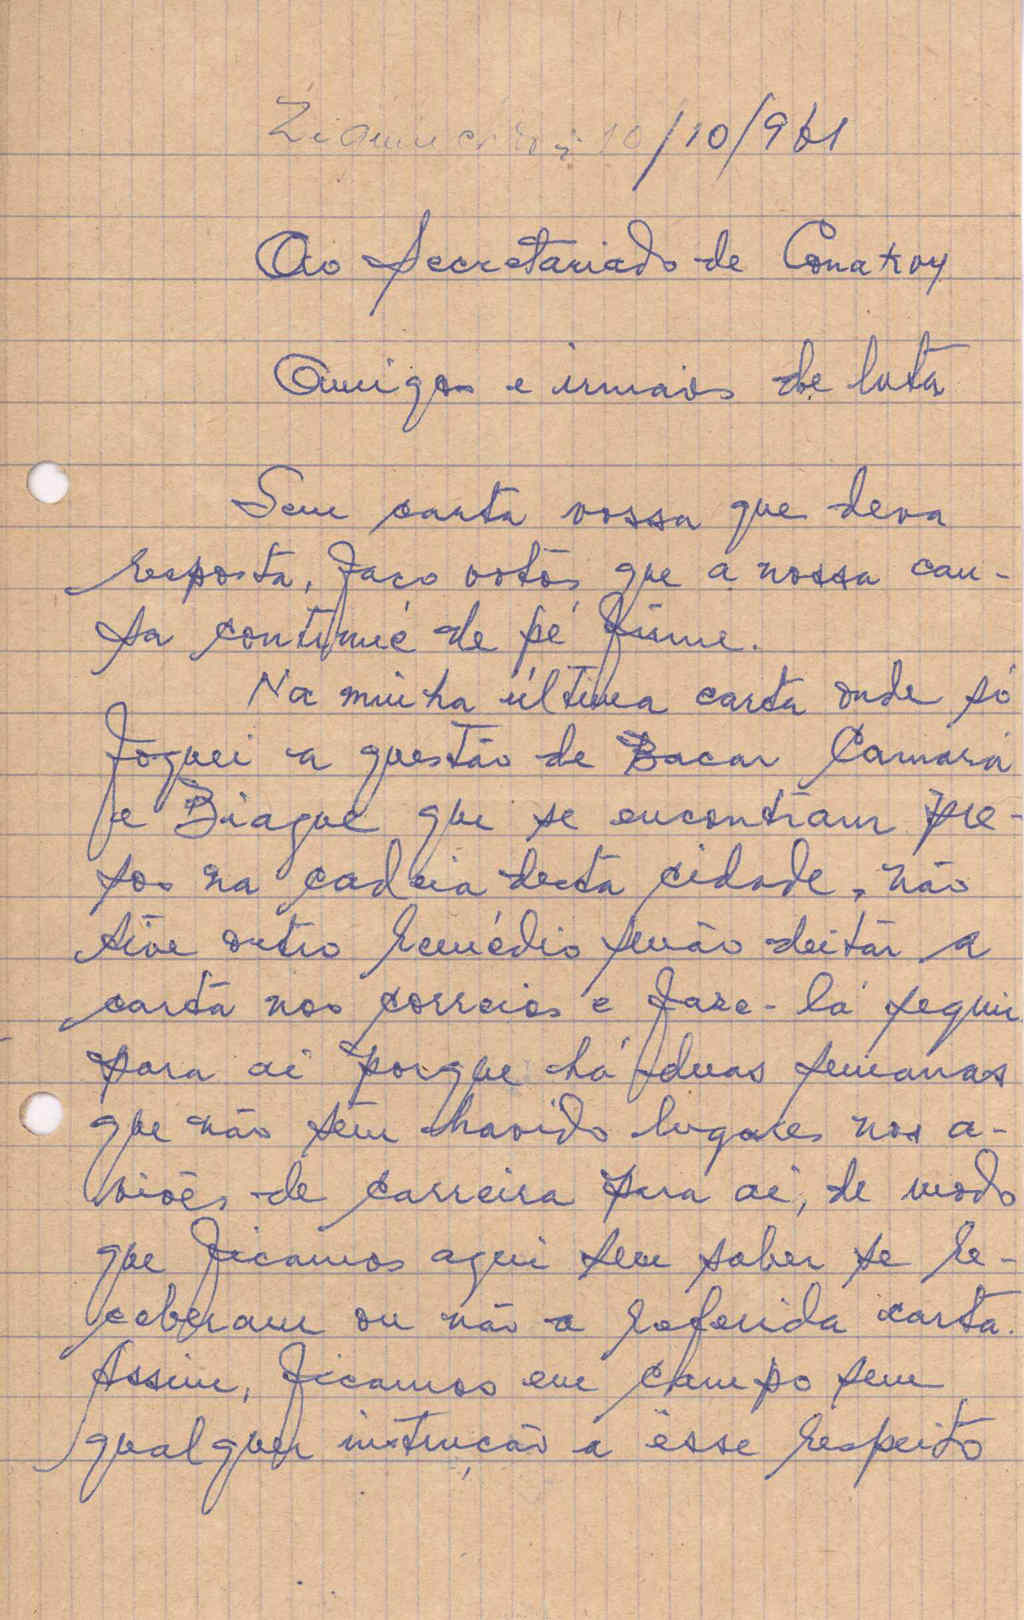 Ziguinchor, 10/10/961
Ao Secretariado de Conakry
Amigos e irmãos de luta
Sem carta vossa que deva
resposta, faço votos que a nossa cau-
sa continué de pé firme.
Na minha última carta onde só
foquei a questão de Bacar Camará
e Biague que se encontram pre-
sos na cadeia desta cidade, não
tive outro remédio senão deitar a
carta nos correios e faze-la seguir
para aí porque há duas semanas
que não tem havido lugares nos a-
viões de carreira para aí, de modo
que ficamos aqui sem saber se re-
ceberam ou não a referida carta.
Assim, ficamos em campo sem
qualquer instrução a êsse respeito